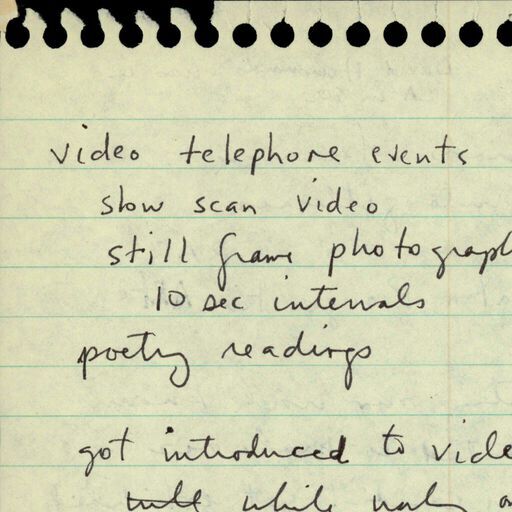 video telephone events
slow scan video
still frame photograph
10 sec intervals
poetry readings
got introduced to vide
while